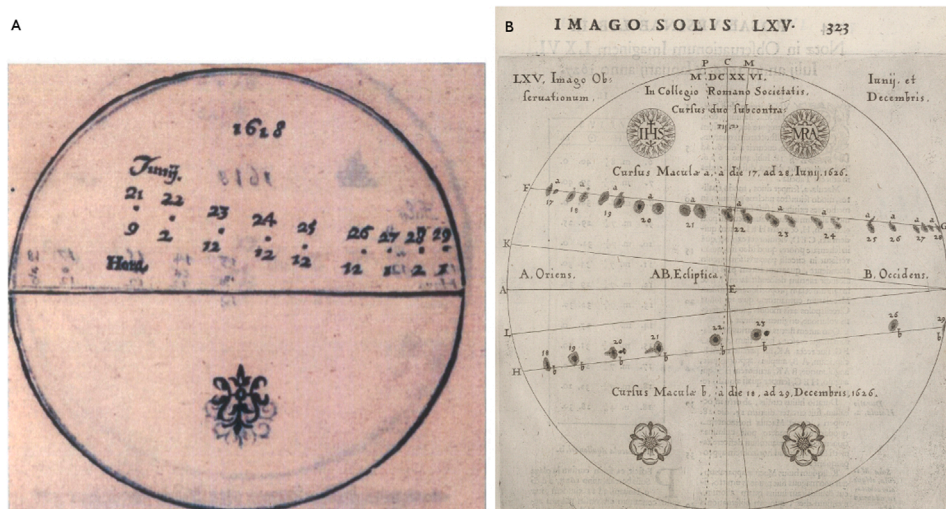 A
1618
Junij.
21 22 23 24 25 26 27 28 29
9 2 12 12 12 12 1 2 1
B
IMAGO SOLIS LXV. 323
P C M
M DC XX VI.
LXV. Imago Ob=
seruationum.
In Collegio Romano Societatis.
Cursus duo subcontra
Iunij. et
Decembris.
IHS MRA
Cursus Maculæ a, a die 17, ad 28, Iunij, 1626.
F a a a a a a a a a a G
17 18 19 20 21 22 23 24 25 26 27 28
K
A. Oriens. AB. Ecliptica. B. Occidens.
A E
L
18 19 20 21 22 23 26 29
H b b b b b b b b
Cursus Maculæ b, a die 18, ad 29, Decembris, 1626.